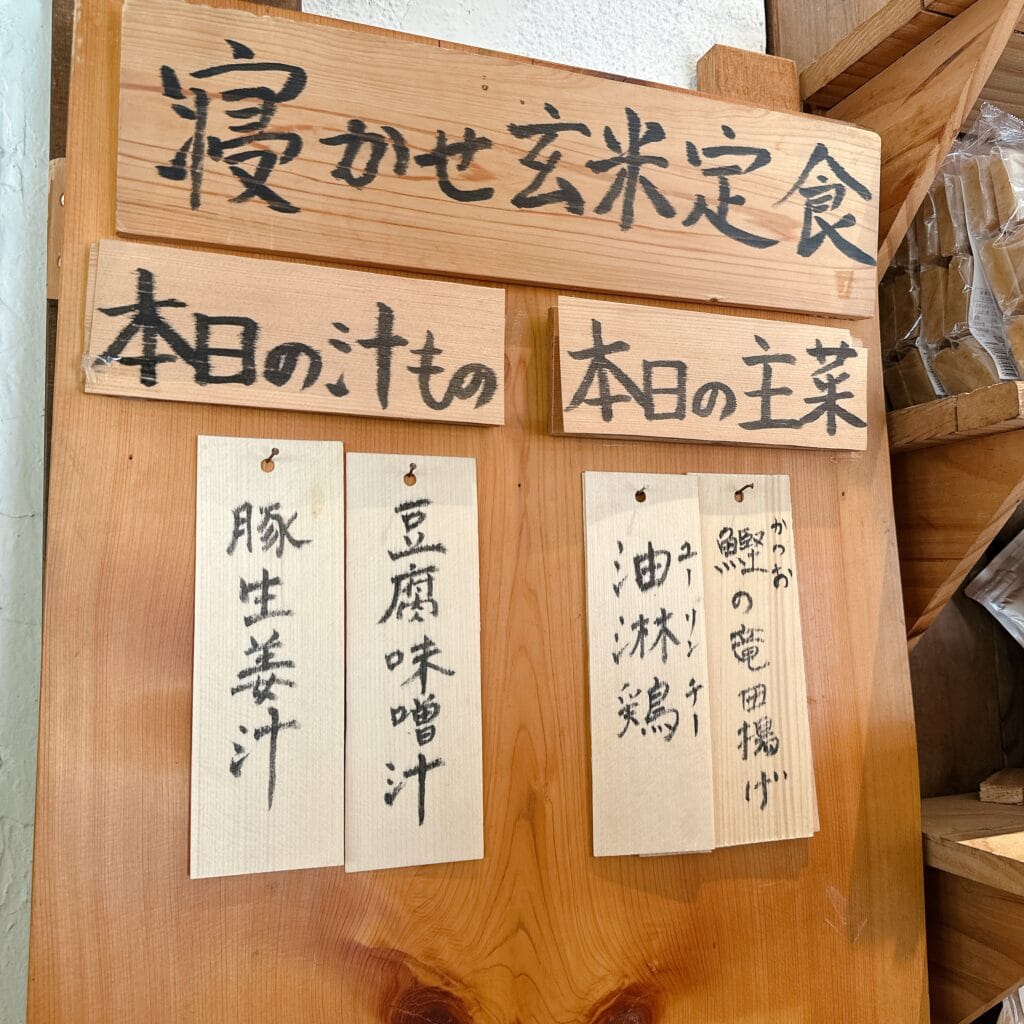 寝かせ玄米定食
本日の汁もの
本日の主菜
豆腐味噌汁
豚生姜汁
かつお
鰹の竜田揚げ
ユーリンチー
油淋鶏